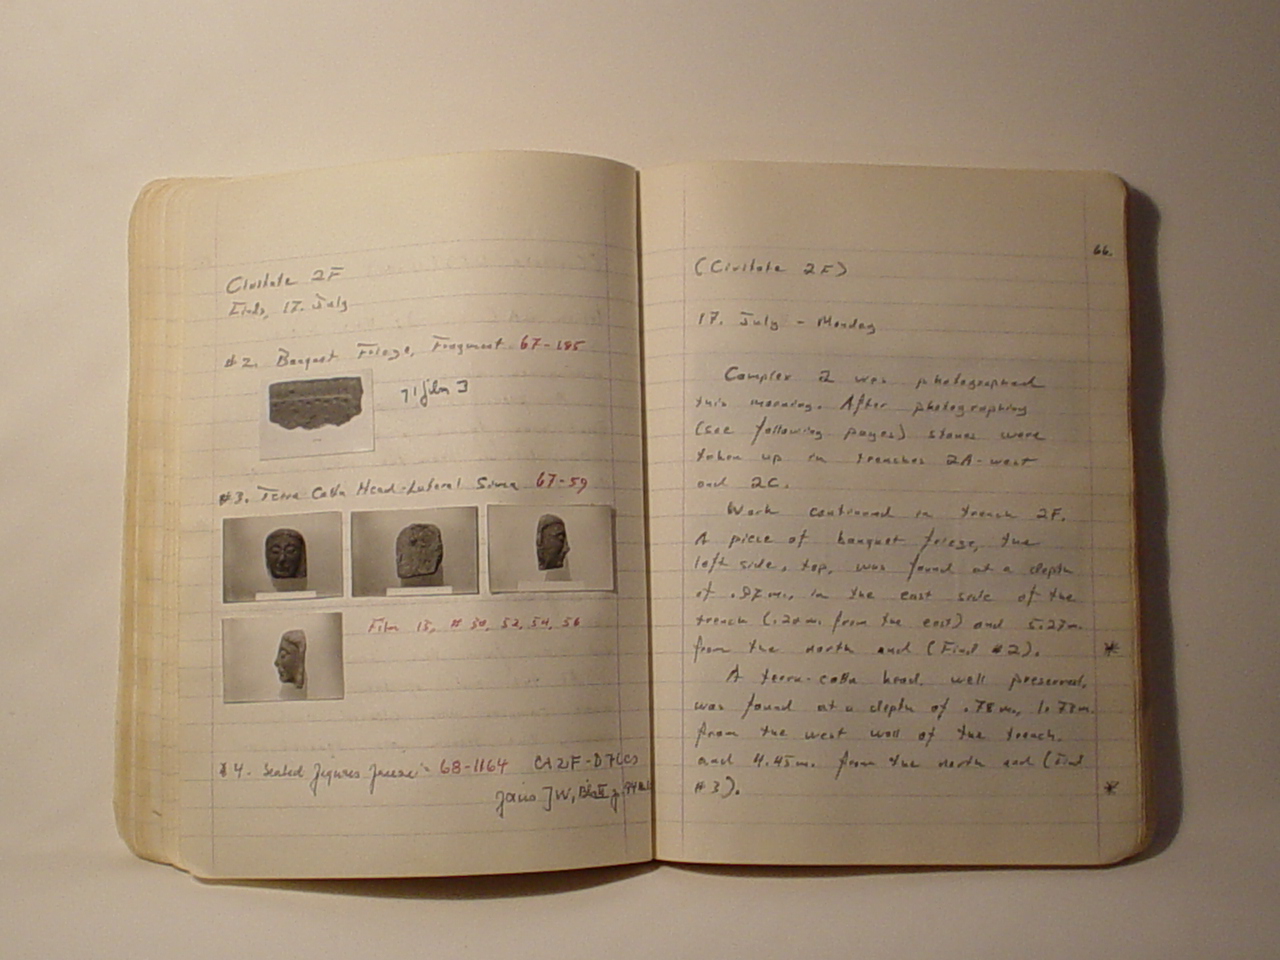 Civitate 2F
Finds, 17. July
#2. Banquet Frieze, Fragment 67-185
71 film 3
#3. Terra Cotta Head-Lateral Sima 67-59
Film 15, # 50, 52, 54, 56
#4. Seated figures frieze: 68-1164 CA2F-D7Lcs
joins JW,
66.
(Civitate 2F)
17. July - Monday
Complex 2 was photographed
this morning. After photographing
(see following pages) stones were
taken up in trenches 2A-west
and 2C.
Work continued in trench 2F.
A piece of banquet frieze, the
left side, top, was found at a depth
of .87m, in the east side of the
trench (.20m. from the east) and 5.27m.
from the north end (Find #2). *
A terra-cotta head, well preserved,
was found at a depth of .78m, 1.77m.
from the west wall of the trench.
and 4.45m. from the north end (Find
#3). *